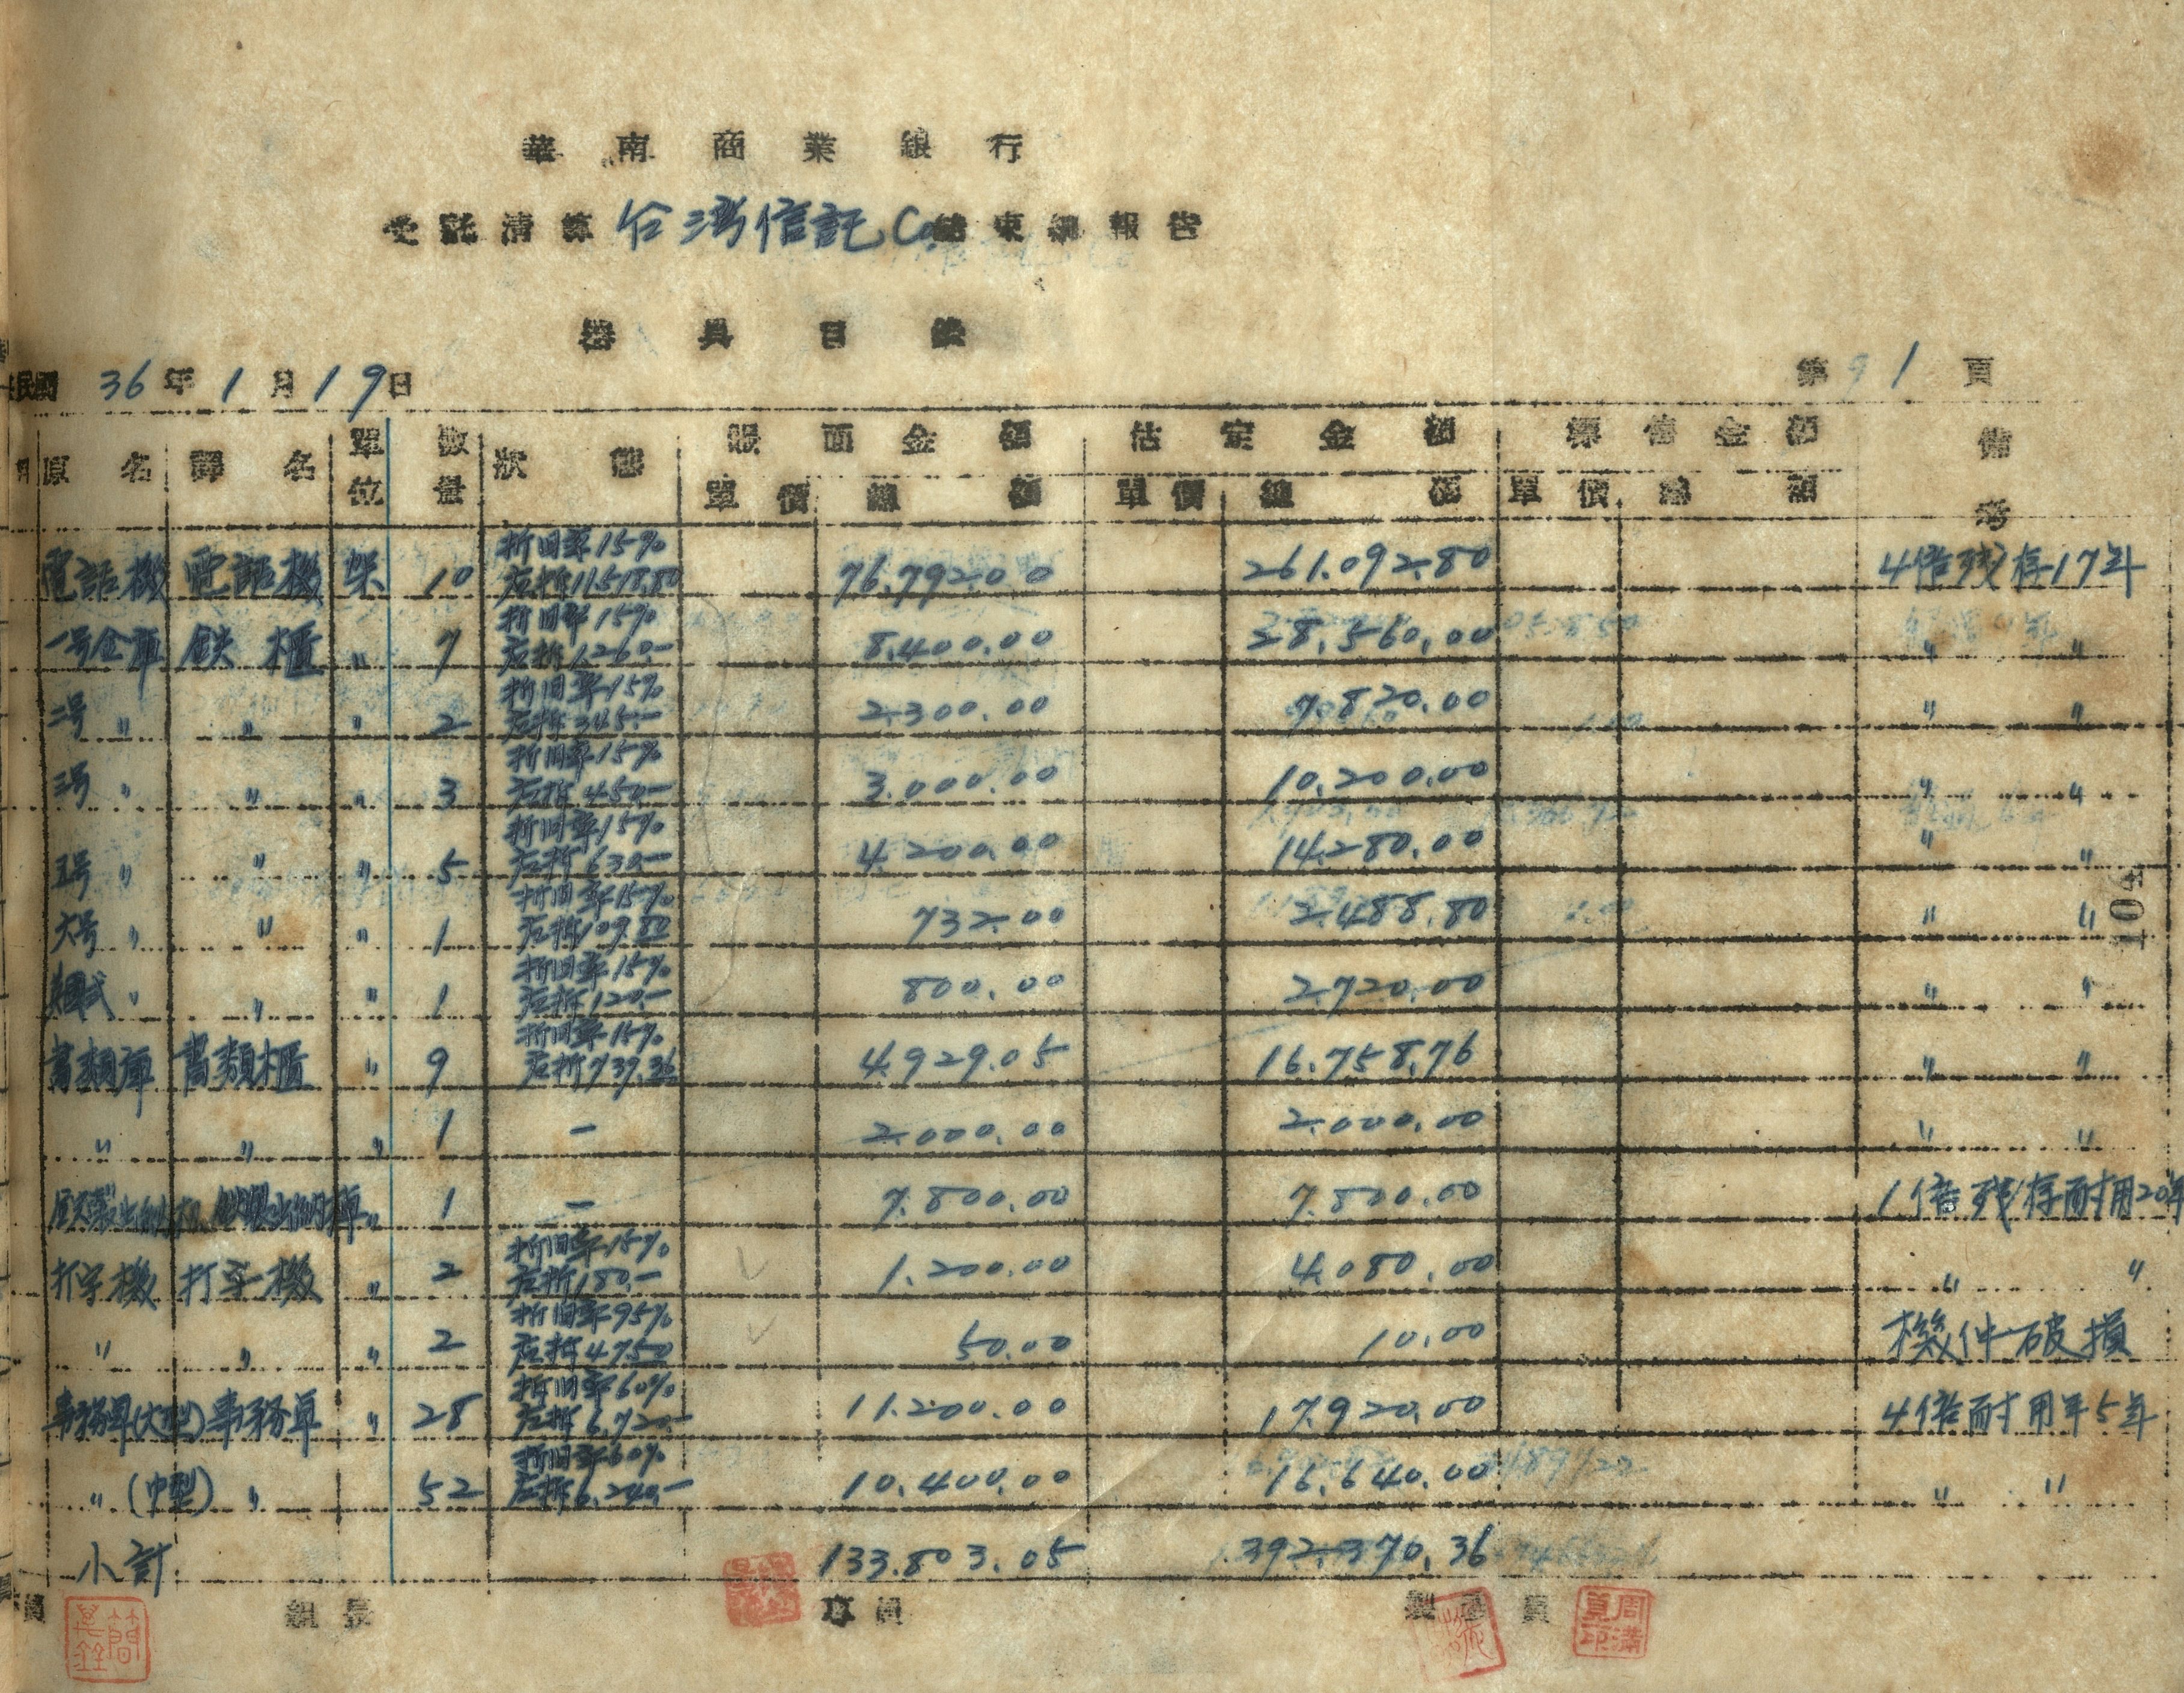 華南商業銀行
受託清算台灣信託Co.結束組報告
器具目錄
民國36年1月19日 第1頁
原名 譯名 單位 數量 狀態 賬面金額 估定金額 標售金額 備考
單價 總額 單價 總價 單價 總額
電話機 電話機 架 10 折旧率15% 应折11,518.80 76,792.00 261,092.80 4倍残存17年
一号金庫 鉄櫃 〃 7 折旧率15% 应折1,260.- 8,400.00 28,560.00 〃 〃
二号〃 〃 〃 2 折旧率15% 应折345.- 2,300.00 7,820.00 〃 〃
三号〃 〃 〃 3 折旧率15% 应折450.- 3,000.00 10,200.00 〃 〃
五号〃 〃 〃 5 折旧率15% 应折630.- 4,200.00 14,280.00 〃 〃
大号〃 〃 〃 1 折旧率15% 应折109.80 732.00 2,488.80 〃 〃
〃 〃 〃 1 折旧率15% 应折120.- 800.00 2,720.00 〃 〃
書類庫 書類櫃 〃 9 折旧率15% 应折739.36 4,929.05 16,758.76 〃 〃
〃 〃 〃 1 - 2,000.00 2,000.00 〃 〃
〃 1 - 7,800.00 7,800.00 1倍残存耐用20年
打字機 打字機 〃 2 折旧率15% 应折180.- 1,200.00 4,080.00 〃 〃
〃 〃 〃 2 折旧率95% 应折47.50 50.00 10.00 機件破損
事務卓(大型) 事務卓 〃 28 折旧率60% 应折6,720.- 11,200.00 17,920.00 4倍耐用年5年
〃(中型) 〃 52 折旧率60% 应折6,240.- 10,400.00 16,640.00 〃 〃
小計 133,803.05 392,370.36
104
組長 專員 製表員